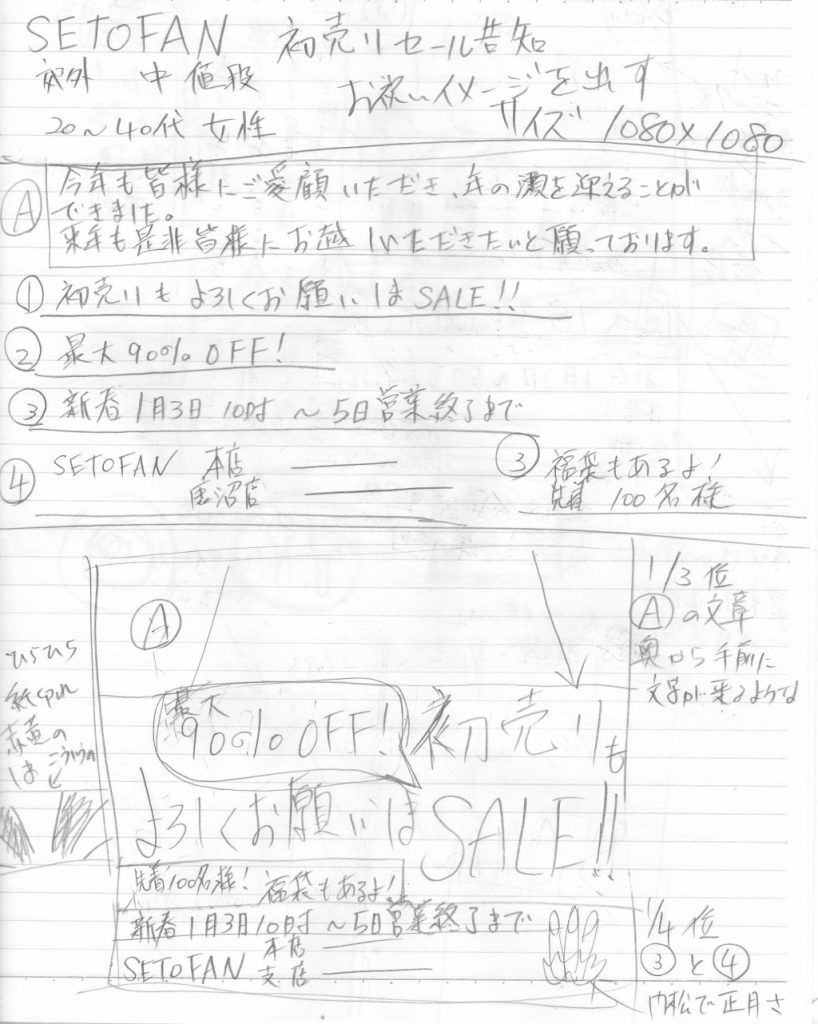 SETOFAN 初売りセール告知
郊外 中値段 お祝いイメージを出す
20〜40代 女性 サイズ 1080×1080
Ⓐ 今年も皆様にご愛顧いただき、年の瀬を迎えることが
できました。
来年も是非皆様にお越しいただきたいと願っております。
① 初売りもよろしくお願いしまSALE!!
② 最大90%OFF!
③ 新春1月3日10時〜5日営業終了まで
④ SETOFAN 本店
鹿沼店
③ 福袋もあるよ!
先着100名様
1/3位
Ⓐの文章
奥から手前に
文字が来るような
Ⓐ
ひらひら
紙
赤、黄の
こういうの
最大
90%OFF!
初売りも
よろしくお願いしまSALE!!
先着100名様! 福袋もあるよ!
新春1月3日10時〜5日営業終了まで
SETOFAN 本店
支店
1/4位
③と④
門松で正月さ